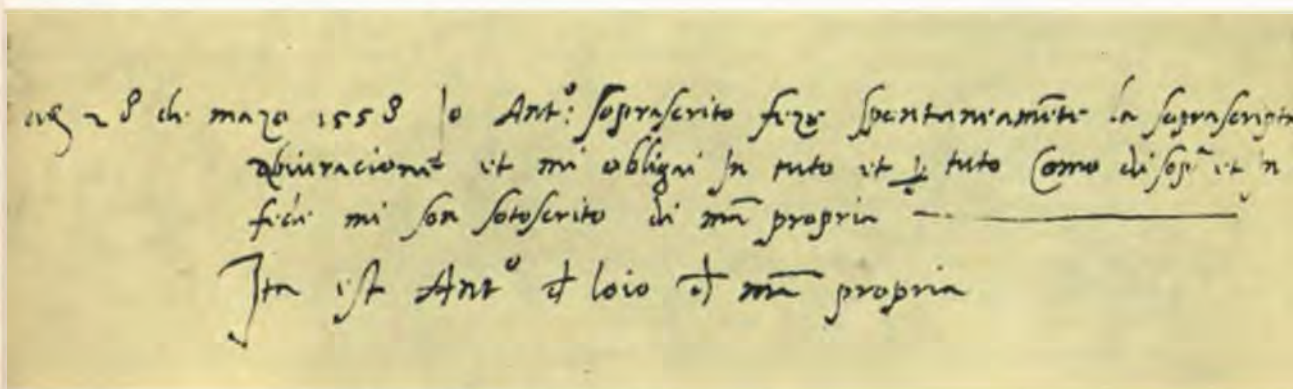 28 de mazo 1558 Io Antº: soprascrito feze spontaneamẽte la soprascripta
abiuracione et mi obligai In tuto et p tuto Como di sopª et in
fede mi son sotoscrito di mã propria
Ita est Antº d loio d mã propria